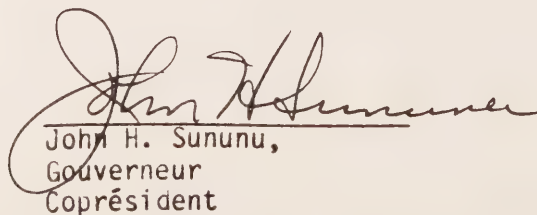 John H Sununu
John H. Sununu,
Gouverneur
Coprésident